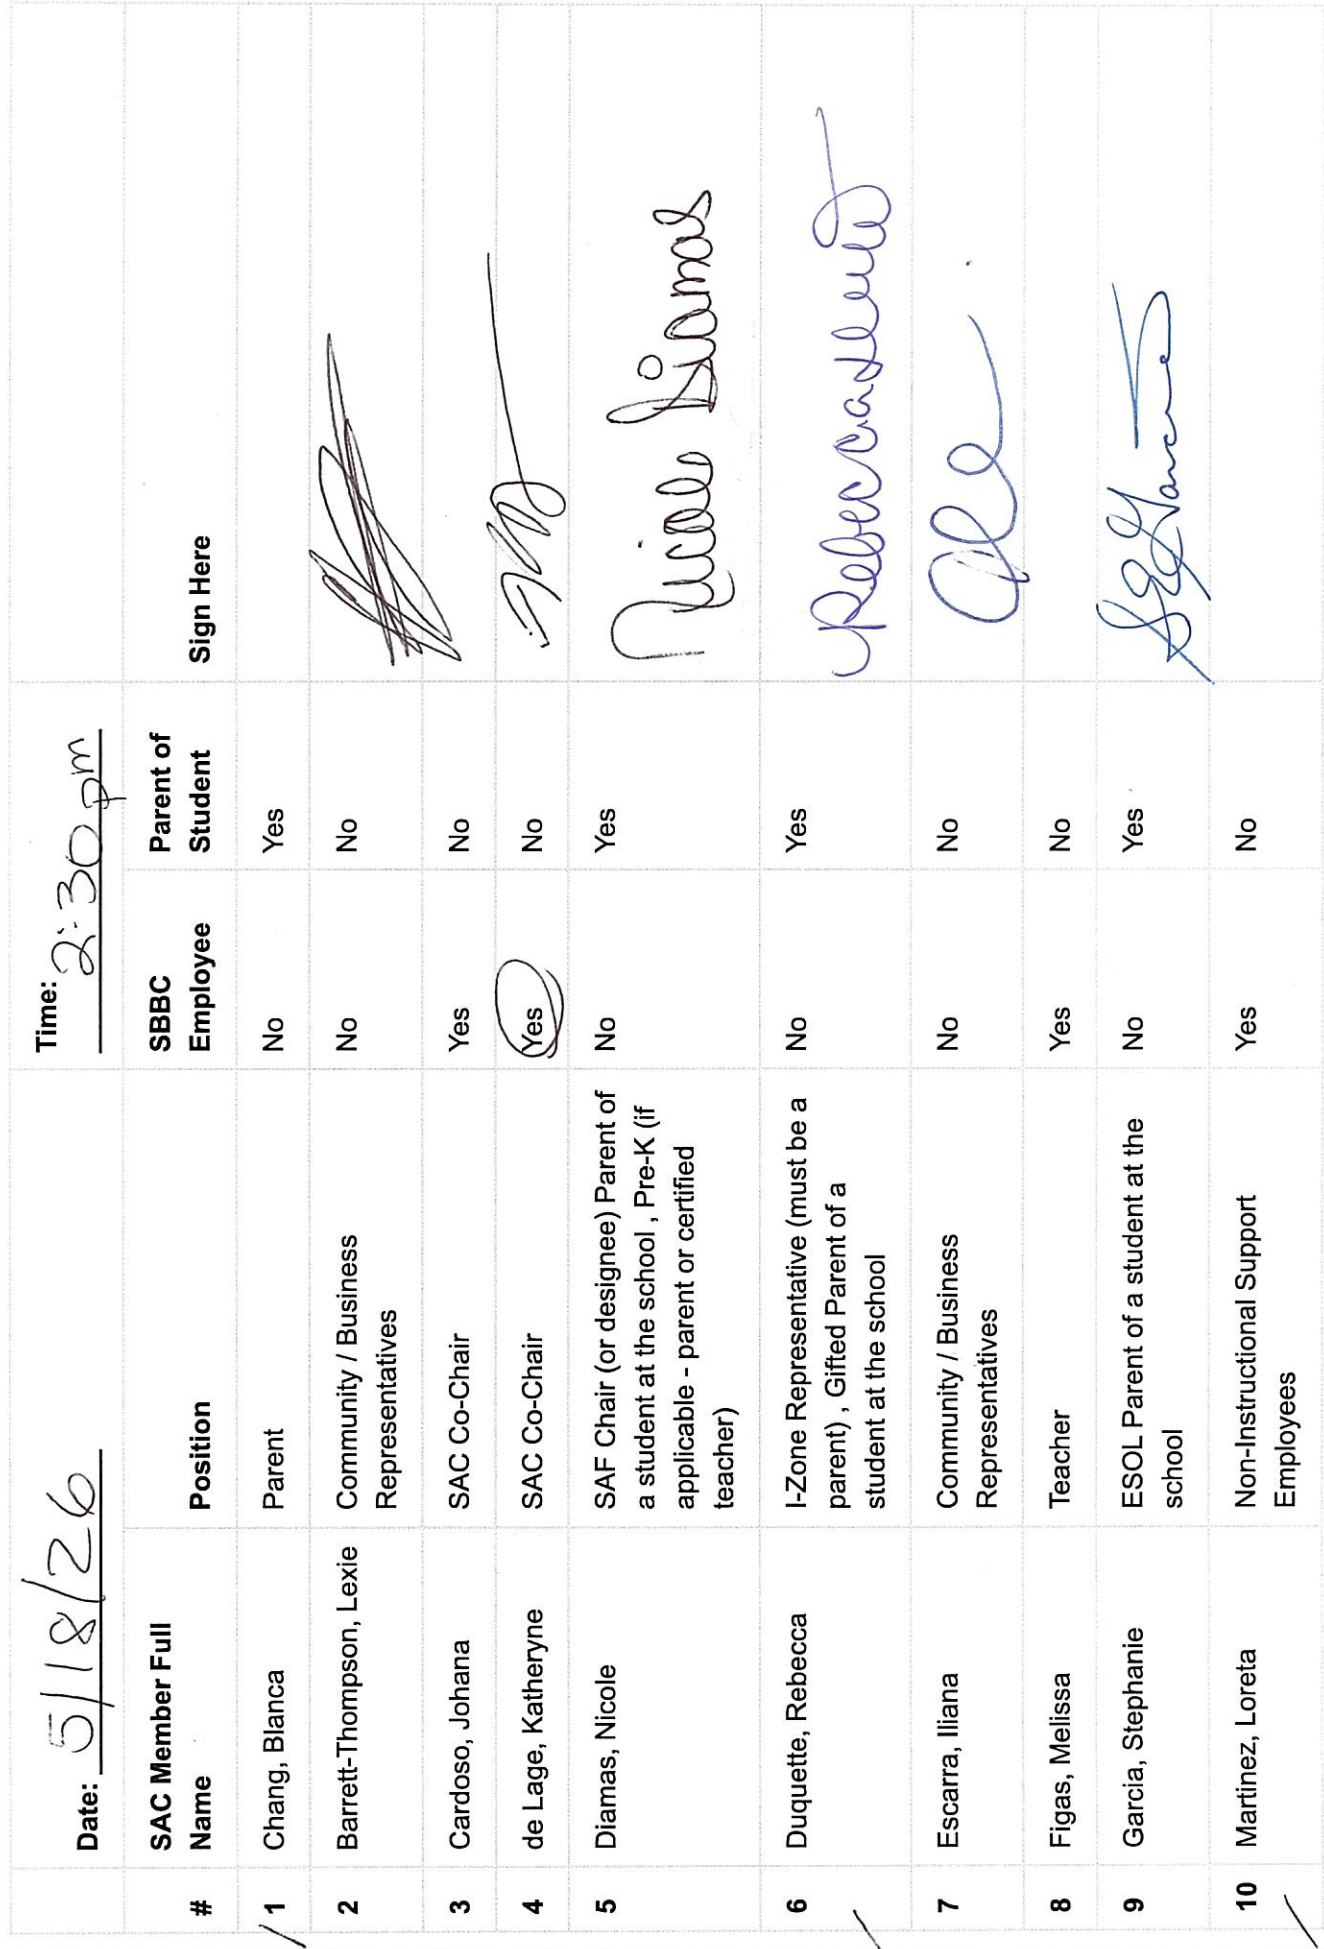 Date: 5/18/26 Time: 2:30 pm
# SAC Member Full Name Position SBBC Employee Parent of Student Sign Here
1 Chang, Blanca Parent No Yes
2 Barrett-Thompson, Lexie Community / Business Representatives No No
3 Cardoso, Johana SAC Co-Chair Yes No
4 de Lage, Katheryne SAC Co-Chair Yes No
5 Diamas, Nicole SAF Chair (or designee) Parent of a student at the school , Pre-K (if applicable - parent or certified teacher) No Yes Nicole Diamas
6 Duquette, Rebecca I-Zone Representative (must be a parent) , Gifted Parent of a student at the school No Yes Rebecca
7 Escarra, Iliana Community / Business Representatives No No
8 Figas, Melissa Teacher Yes No
9 Garcia, Stephanie ESOL Parent of a student at the school No Yes
10 Martinez, Loreta Non-Instructional Support Employees Yes No